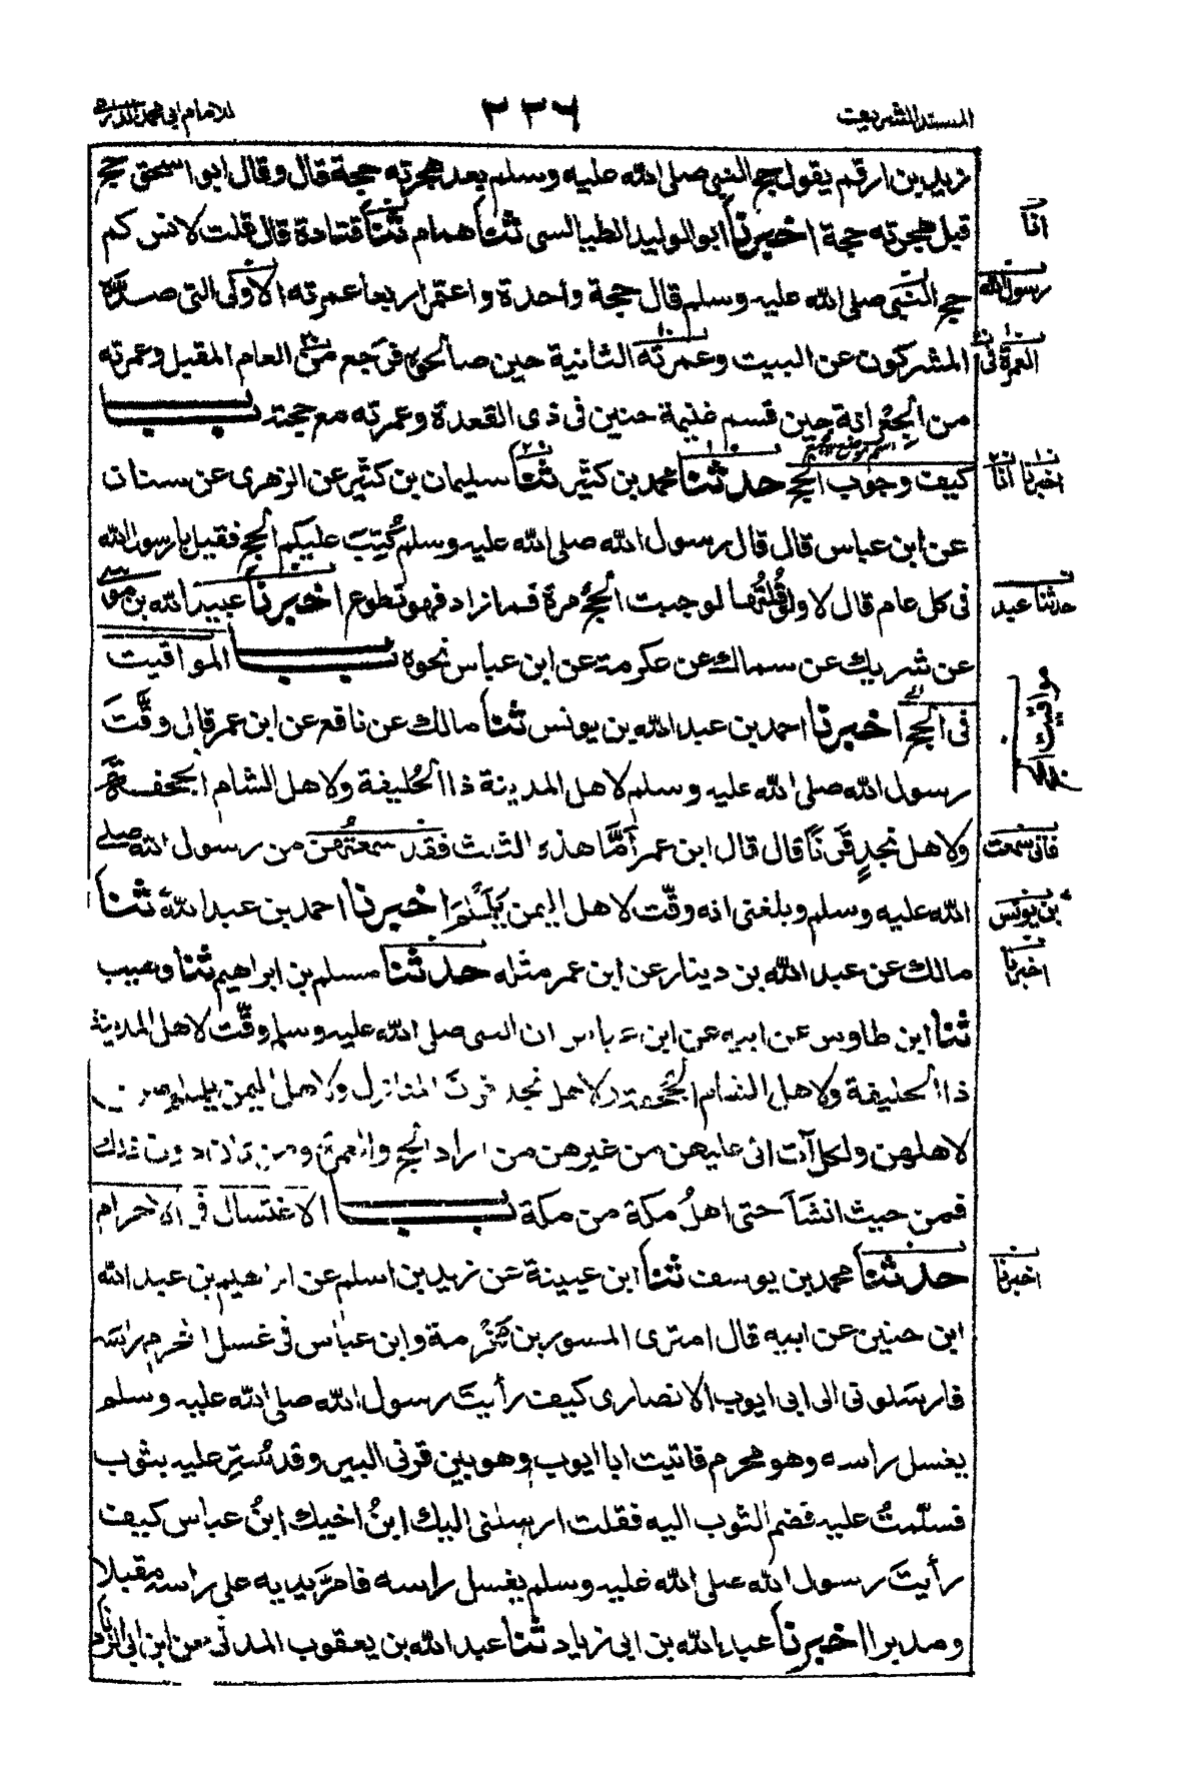 المسند الشريف ٢٢٦ للامام ابي محمد الدارمي
زيد بن ارقم يقول حج النبي صلى الله عليه وسلم بعد هجرته حجة قال وقال ابو اسحق حج
قبل هجرته حجة اخبرنا ابو الوليد الطيالسى ثنا همام ثنا قتادة قال قلت لانس كم
انا
حج النبي صلى الله عليه وسلم قال حجة واحدة واعتمر اربعا عمرته الاولى التى صده
رسول الله
المشركون عن البيت وعمرته الثانية حين صالحوه فرجع من العام المقبل وعمرته
العمرة في
من الجعرانة حين قسم غنيمة حنين فى ذى القعدة وعمرته مع حجته باب
كيف وجوب الحج حدثنا محمد بن كثير ثنا سليمان بن كثير عن الزهرى عن سنان
اخبرنا انا
عن ابن عباس قال قال رسول الله صلى الله عليه وسلم كُتِبَ عليكم الحج فقيل يا رسول الله
فى كل عام قال لا ولو قُلتُها لوجبت الحجُّ مرة فما زاد فهو تطوع اخبرنا عبيد الله بن موسى
حدثنا عبد
عن شريك عن سماك عن عكرمة عن ابن عباس نحوه باب المواقيت
فى الحج اخبرنا احمد بن عبد الله بن يونس ثنا مالك عن نافع عن ابن عمر قال وقَّتَ
مواقيت
رسول الله صلى الله عليه وسلم لاهل المدينة ذا الحُليفة ولاهل الشام الجحفة
ولاهل نجدٍ قَرنًا قال قال ابن عمر أمّا هذه الثلث فقد سمعتُهن من رسول الله صلى
فانى سمعت
الله عليه وسلم وبلغنى انه وقّت لاهل اليمن يَلَمْلَم اخبرنا احمد بن عبد الله ثنا
بن يونس
مالك عن عبد الله بن دينار عن ابن عمر مثله حدثنا مسلم بن ابراهيم ثنا وهيب
اخبرنا
ثنا ابن طاوس عن ابيه عن ابن عباس ان النبى صلى الله عليه وسلم وقَّت لاهل المدينة
ذا الحليفة ولاهل الشام الجُحفة ولاهل نجد قرن المنازل ولاهل اليمن يلملم هن
لاهلهن ولكل آت اتى عليهن من غيرهن من اراد الحج والعمرة ومن كان دون ذلك
فمن حيث انشَأَ حتى اهلُ مكة من مكة باب الاغتسال فى الاحرام
حدثنا محمد بن يوسف ثنا ابن عيينة عن زيد بن اسلم عن ابراهيم بن عبد الله
اخبرنا
ابن حنين عن ابيه قال امترى المسور بن مَخْرمة وابن عباس فى غسل المحرم راسه
فارسَلونى الى ابى ايوب الانصارى كيف رأيتَ رسول الله صلى الله عليه وسلم
يغسل راسه وهو محرم فاتيت ابا ايوب وهو بين قرنى البير وقد سُتِرَ عليه بثوب
فسلّمتُ عليه فضم الثوب اليه فقلت ارسلنى اليك ابنُ اخيك ابنُ عباس كيف
رأيتَ رسول الله صلى الله عليه وسلم يغسل راسه فامَرَّ يديه على راسه مقبلا
ومدبرا اخبرنا عبد الله بن ابى زياد ثنا عبد الله بن يعقوب المدنى عن ابن ابى الزناد